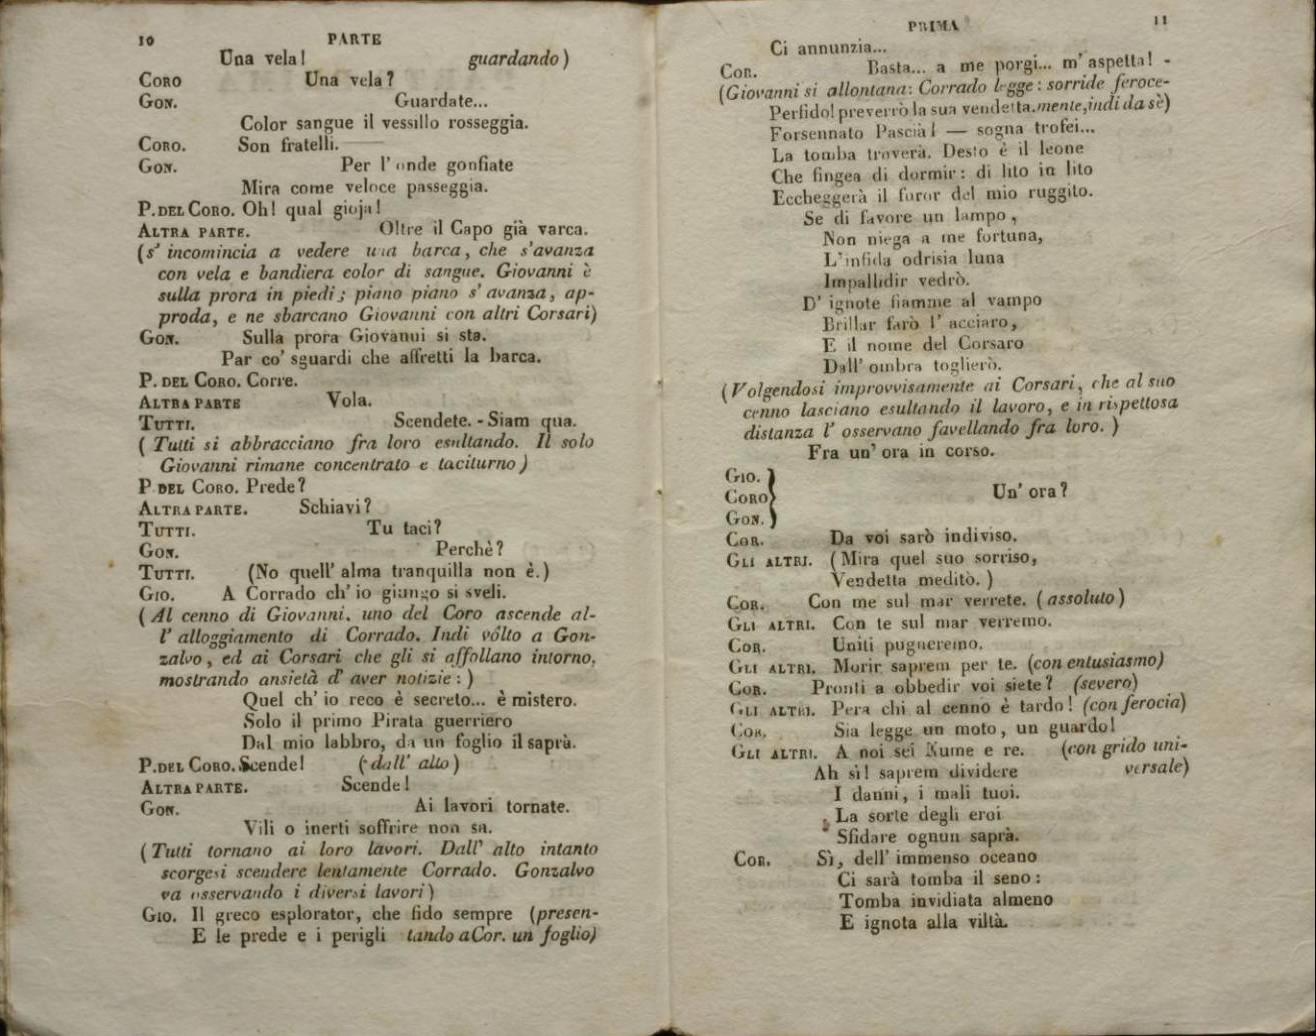 10 PARTE
Una vela! guardando)
CORO Una vela?
GON. Guardate...
Color sangue il vessillo rosseggia.
CORO. Son fratelli.
GON. Per l'onde gonfiate
Mira come veloce passeggia.
P. DEL CORO. Oh! qual gioja!
ALTRA PARTE. Oltre il Capo già varca.
(s' incomincia a vedere una barca, che s'avanza
con vela e bandiera color di sangue. Giovanni è
sulla prora in piedi; piano piano s' avanza, ap-
proda, e ne sbarcano Giovanni con altri Corsari)
GON. Sulla prora Giovanni si sta.
Par co' sguardi che affretti la barca.
P. DEL CORO. Corre.
ALTRA PARTE Vola.
TUTTI. Scendete. - Siam qua.
( Tutti si abbracciano fra loro esultando. Il solo
Giovanni rimane concentrato e taciturno)
P DEL CORO. Prede?
ALTRA PARTE. Schiavi?
TUTTI. Tu taci?
GON. Perchè?
TUTTI. (No quell' alma tranquilla non è.)
GIO. A Corrado ch' io giungo si sveli.
( Al cenno di Giovanni. uno del Coro ascende al-
l' alloggiamento di Corrado. Indi vòlto a Gon-
zalvo, ed ai Corsari che gli si affollano intorno,
mostrando ansietà d' aver notizie: )
Quel ch' io reco è secreto... è mistero.
Solo il primo Pirata guerriero
Dal mio labbro, da un foglio il saprà.
P. DEL CORO. Scende! (dall' alto)
ALTRA PARTE. Scende!
GON. Ai lavori tornate.
Vili o inerti soffrire non sa.
(Tutti tornano ai loro lavori. Dall' alto intanto
scorgesi scendere lentamente Corrado. Gonzalvo
va osservando i diversi lavori)
GIO. Il greco esplorator, che fido sempre (presen-
E le prede e i perigli tando a Cor. un foglio)
PRIMA 11
Ci annunzia...
COR. Basta... a me porgi... m' aspetta! -
(Giovanni si allontana: Corrado legge: sorride feroce-
Perfido! preverrò la sua vendetta. mente, indi da sè)
Forsennato Pascià! — sogna trofei...
La tomba troverà. Desto è il leone
Che fingea di dormir: di lito in lito
Eccheggerà il furor del mio ruggito.
Se di favore un lampo,
Non niega a me fortuna,
L'infida odrisia luna
Impallidir vedrò.
D' ignote fiamme al vampo
Brillar farò l' acciaro,
E il nome del Corsaro
Dall' ombra toglierò.
(Volgendosi improvvisamente ai Corsari, che al suo
cenno lasciano esultando il lavoro, e in rispettosa
distanza l' osservano favellando fra loro. )
Fra un' ora in corso.
GIO.
CORO Un' ora?
GON.
COR. Da voi sarò indiviso.
GLI ALTRI. (Mira quel suo sorriso,
Vendetta meditò. )
COR. Con me sul mar verrete. (assoluto)
GLI ALTRI. Con te sul mar verremo.
COR. Uniti pugneremo.
GLI ALTRI. Morir saprem per te. (con entusiasmo)
COR. Pronti a obbedir voi siete? (severo)
GLI ALTRI. Pera chi al cenno è tardo! (con ferocia)
COR. Sia legge un moto, un guardo!
GLI ALTRI. A noi sei Nume e re. (con grido uni-
Ah sì! saprem dividere versale)
I danni, i mali tuoi.
La sorte degli eroi
Sfidare ognun saprà.
COR. Sì, dell' immenso oceano
Ci sarà tomba il seno:
Tomba invidiata almeno
E ignota alla viltà.